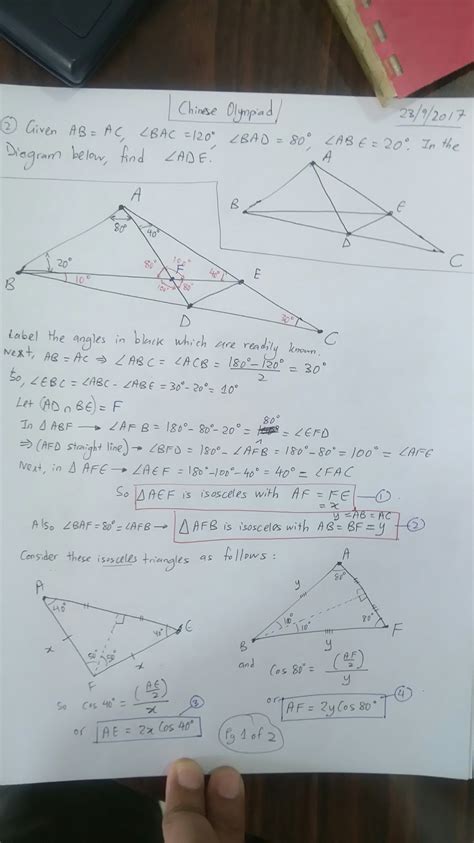 Chinese Olympiad
23/9/2017
② Given AB = AC, ∠BAC = 120°, ∠BAD = 80°, ∠ABE = 20°. In the
Diagram below, find ∠ADE.
A
B
E
D
C
A
80°
40°
20°
10°
B
80°
100°
F
100°
80°
40°
E
D
30°
C
Label the angles in black which are readily known.
Next, AB = AC ⇒ ∠ABC = ∠ACB = (180° - 120°)/2 = 30°
So, ∠EBC = ∠ABC - ∠ABE = 30° - 20° = 10°
Let (AD ∩ BE) = F
In ΔABF → ∠AFB = 180° - 80° - 20° = 80° = ∠EFD
⇒ (AFD straight line) → ∠BFD = 180° - ∠AFB = 180° - 80° = 100° = ∠AFE
Next, in ΔAFE → ∠AEF = 180° - 100° - 40° = 40° = ∠FAC
So ΔAEF is isosceles with AF = FE = x ①
y = AB = AC
Also ∠BAF = 80° = ∠AFB → ΔAFB is isosceles with AB = BF = y ②
Consider these isosceles triangles as follows:
A
40°
40°
E
x
50°
50°
x
F
A
80°
y
B
10°
10°
80°
F
y
So cos 40° = (AE/2)/x
or AE = 2x cos 40° ③
and cos 80° = (AF/2)/y
or AF = 2y cos 80° ④
Pg 1 of 2